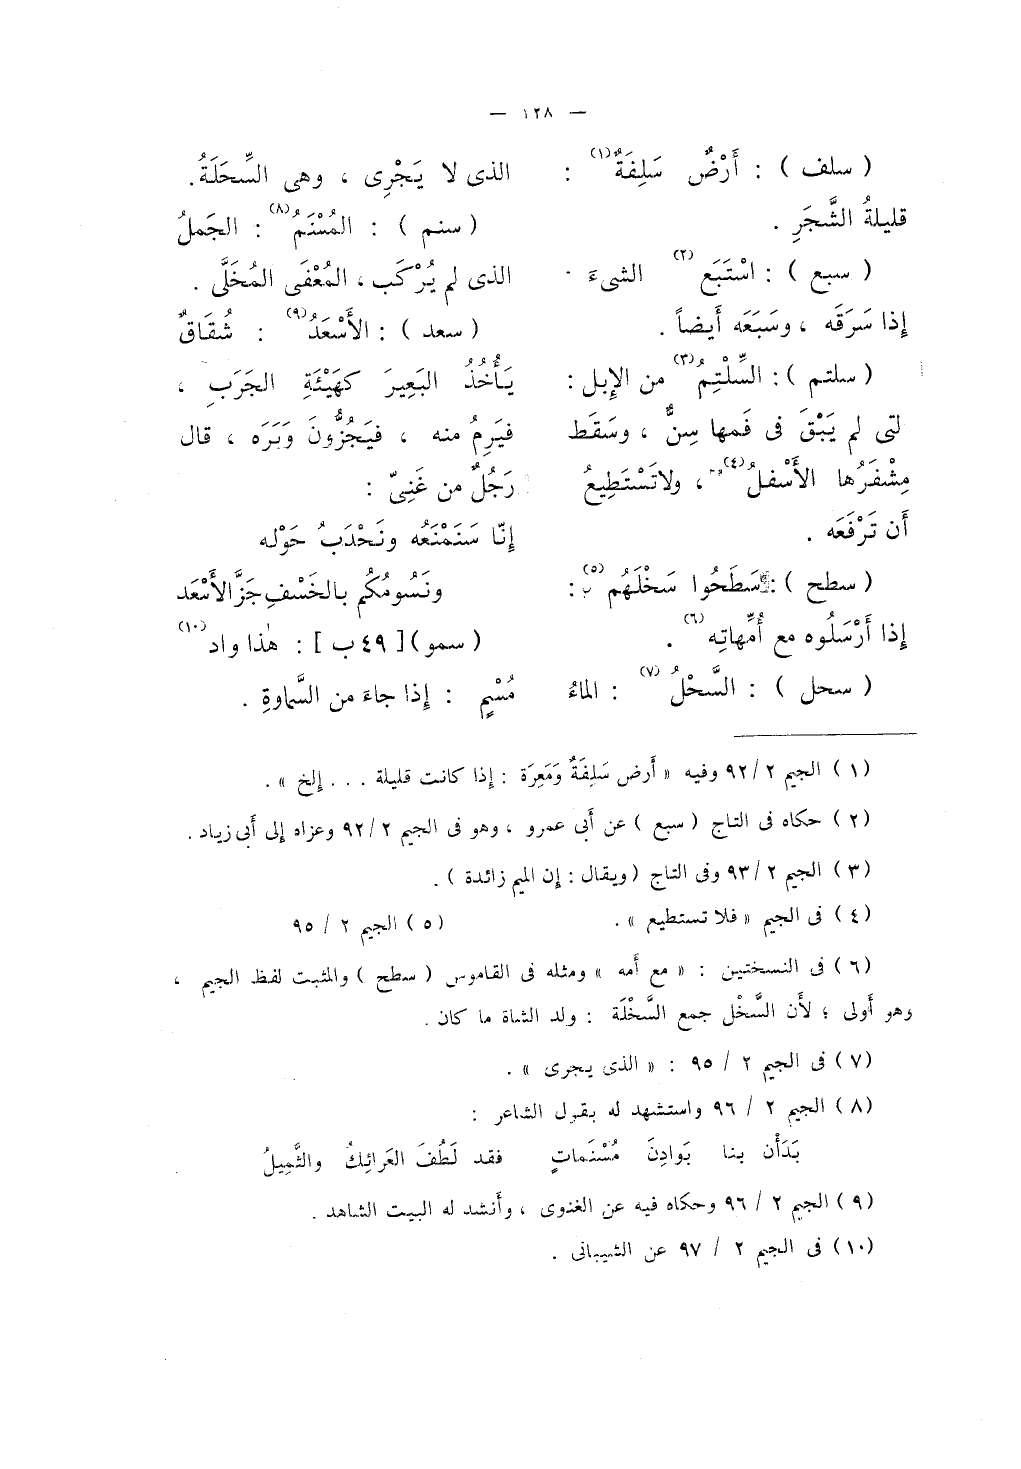 — ١٢٨ —
( سلف ) : أَرْضٌ سَلِفَةٌ(١) :
قليلةُ الشَّجَرِ .
( سبع ) : اسْتَبَع(٢) الشىءَ
إذا سَرَقَه ، وسَبَعَه أَيضاً .
( سلتم ) : السِّلْتِمُ(٣) من الإِبل :
لتى لم يَبْقَ فى فَمها سِنٌّ ، وسَقَط
مِشْفَرُها الأَسْفلُ(٤) ، ولاتَسْتَطِيعُ
أَن تَرْفَعَه .
( سطح ) : سَطَحُوا سَخْلَهُم(٥) :
إذا أَرْسَلُوه مع أُمَّهاتِه(٦) .
( سحل ) : السَّحْلُ(٧) : الماءُ
الذى لا يَجْرِى ، وهى السِّحَلَةُ.
( سنم ) : المُسْنَمُ(٨) : الجَملُ
الذى لم يُرْكَب ، المُعْفَى المُخَلَّى .
( سعد ) : الأَسْعَدُ(٩) : شُقَاقٌ
يَأْخُذُ البَعِيرَ كهَيْئَةِ الجَرَبِ ،
فيَرِمُ منه ، فيَجُزُّونَ وَبَرَه ، قال
رَجُلٌ من غَنِىّ :
إنّا سَنَمْنَعُه ونَحْدَبُ حَوْله
ونَسُومُكُم بالخَسْفِ جَزَّ الأَسْعَد
( سمو ) [ ٤٩ ب ] : هٰذا واد(١٠)
مُسْمٍ : إِذا جاءَ من السَّماوةِ .
( ١ ) الجيم ٢ /٩٢ وفيه « أَرض سَلِفَةٌ وَمَعِرَة : إِذا كانت قليلة . . . إلخ » .
( ٢ ) حكاه فى التاج ( سبع ) عن أبى عمرو ، وهو فى الجيم ٢ /٩٢ وعزاه إلى أبى زياد .
( ٣ ) الجيم ٢ /٩٣ وفى التاج ( ويقال : إن الميم زائدة ) .
( ٤ ) فى الجيم « فلا تستطيع » . ( ٥ ) الجيم ٢ / ٩٥
( ٦ ) فى النسختين : « مع أمه » ومثله فى القاموس ( سطح ) والمثبت لفظ الجيم ،
وهو أولى ؛ لأن السَّخْل جمع السَّخْلَة : ولد الشاة ما كان .
( ٧ ) فى الجيم ٢ / ٩٥ : « الذى يجرى » .
( ٨ ) الجيم ٢ / ٩٦ واستشهد له بقول الشاعر :
بَدَأْن بنا بَوادِنَ مُسْنَماتٍ فقد لَطُفَ العَرائِكُ والثَّمِيلُ
( ٩ ) الجيم ٢ / ٩٦ وحكاه فيه عن الغنوى ، وأنشد له البيت الشاهد .
(١٠) فى الجيم ٢ / ٩٧ عن الشيبانى .